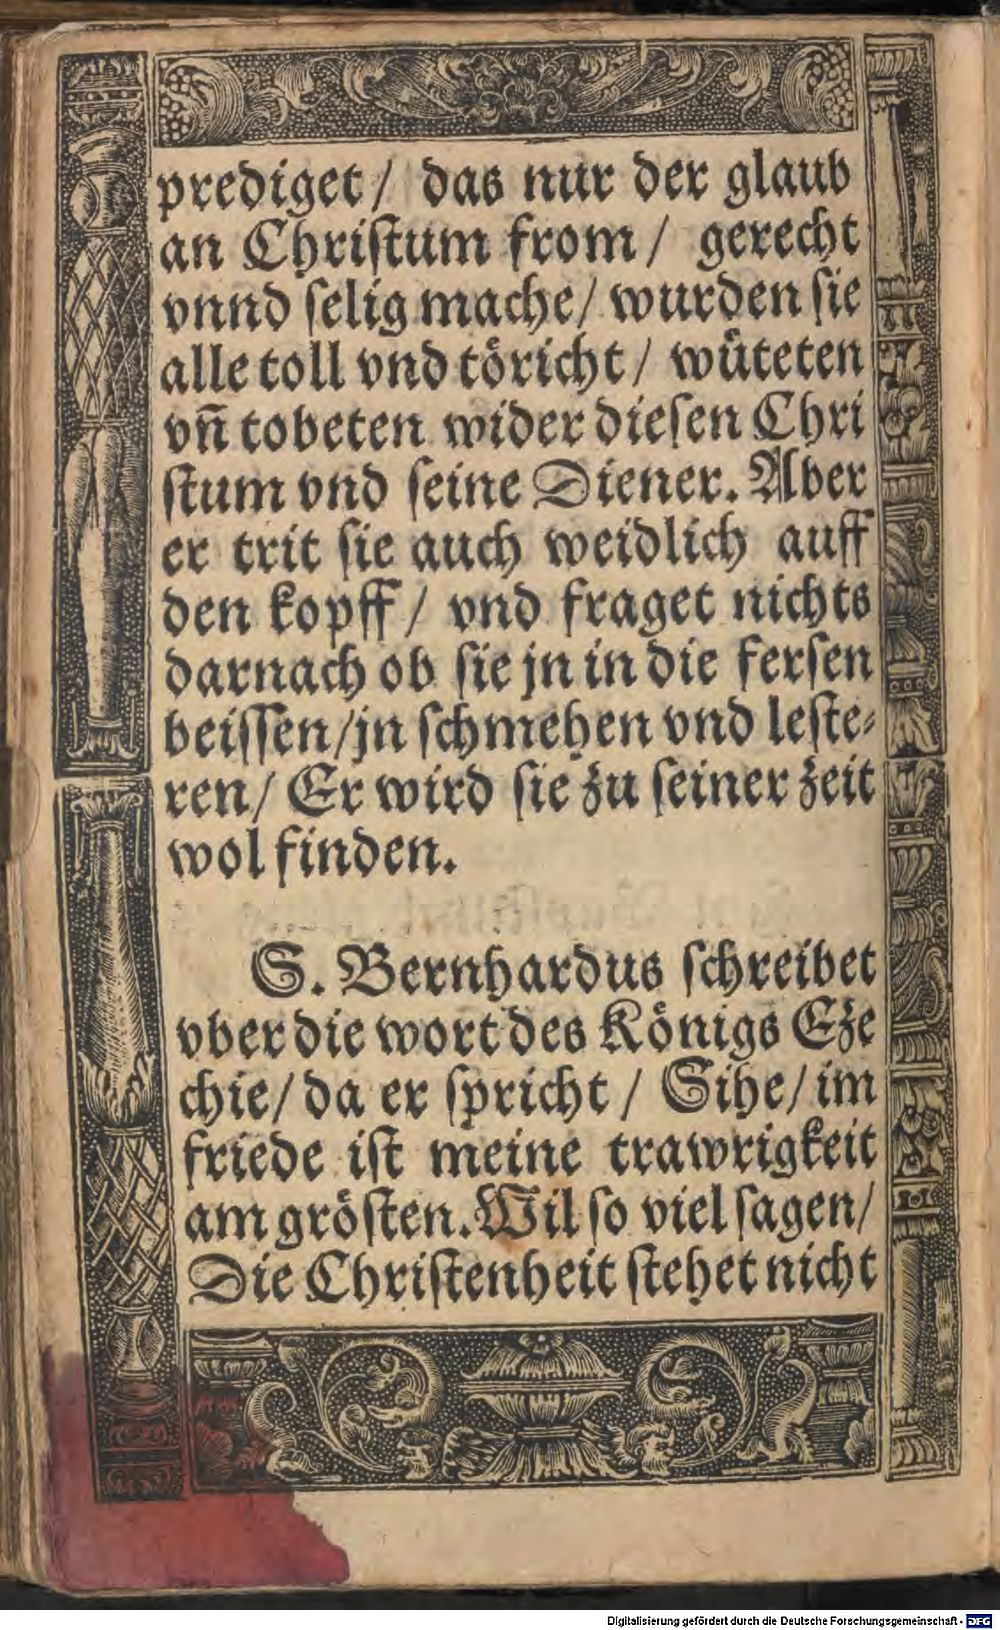 prediget / das nur der glaub
an Chriſtum from / gerecht
vnnd ſelig mache / wurden ſie
alle toll vnd toͤricht / wuͤteten
vñ tobeten wider dieſen Chri
ſtum vnd ſeine Diener. Aber
er trit ſie auch weidlich auff
den kopff / vnd fraget nichts
darnach ob ſie jn in die ferſen
beiſſen / jn ſchmehen vnd leſte⸗
ren / Er wird ſie zu ſeiner zeit
wol finden.
S. Bernhardus ſchreibet
vber die wort des Koͤnigs Eze
chie / da er ſpricht / Sihe / im
friede iſt meine trawrigkeit
am groͤſten. Wil ſo viel ſagen /
Die Chriſtenheit ſtehet nicht
Digitalisierung gefördert durch die Deutsche Forschungsgemeinschaft - DFG